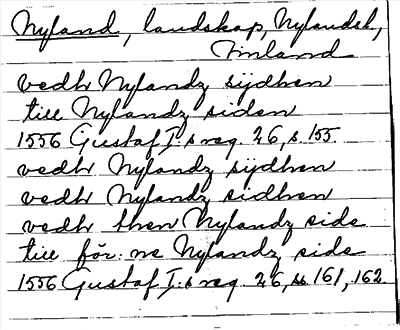 Nyland, landskap, Nylandsl,
Finland
vedh Nylandz sijdhen
till Nylandz siden
1556 Gustaf I:s reg. 26, s. 155.
vedh Nylandz sijdhen
vedh Nylandz sidhen
vedh then Nylandz side
till för:ne Nylandz side
1556 Gustaf I:s reg. 26, ss. 161, 162.